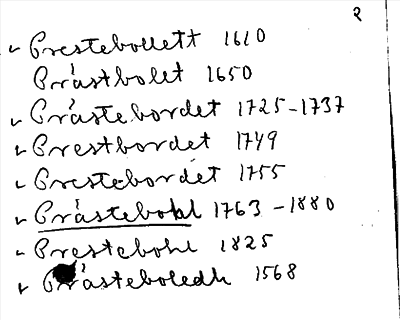 2
Prestebollett 1610
Prästbolet 1650
Prästebordet 1725-1737
Prestbordet 1749
Prestebordet 1755
Prästebohl 1763-1880
Prestebohl 1825
Prästeboledh 1568